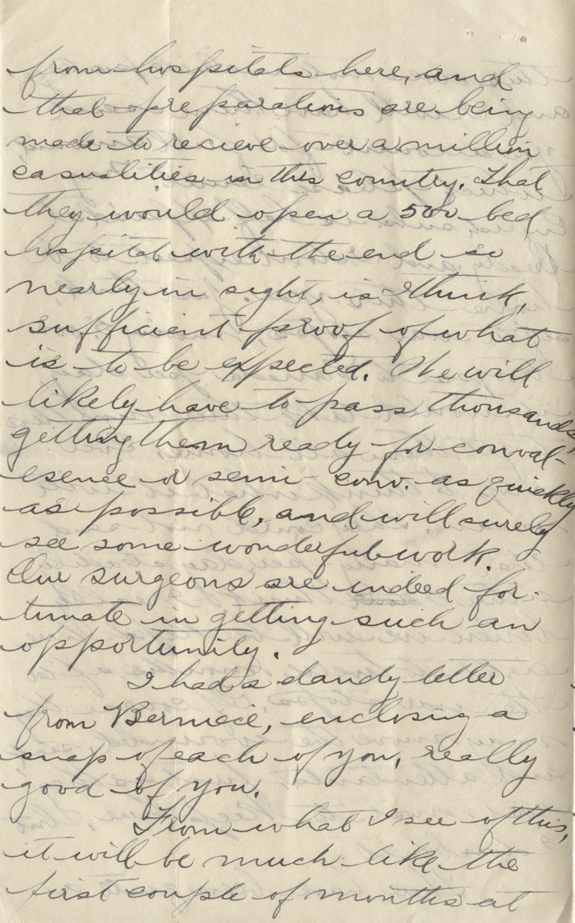 from hospitals here, and
that preparations are being
made to recieve over a million
casualities in this country. That
they would open a 500 bed
hospital with the end so
nearly in sight, is I think,
sufficient proof of what
is to be expected. We will
likely have to pass thousands,
getting them ready for conval-
esence or semi conv. as quickly
as possible, and will surely
see some wonderful work.
Our surgeons are indeed for-
tunate in getting such an
opportunity.
I had a dandy letter
from Berniece, enclosing a
snap of each of you, really
good of you.
From what I see of this,
it will be much like the
first couple of months at